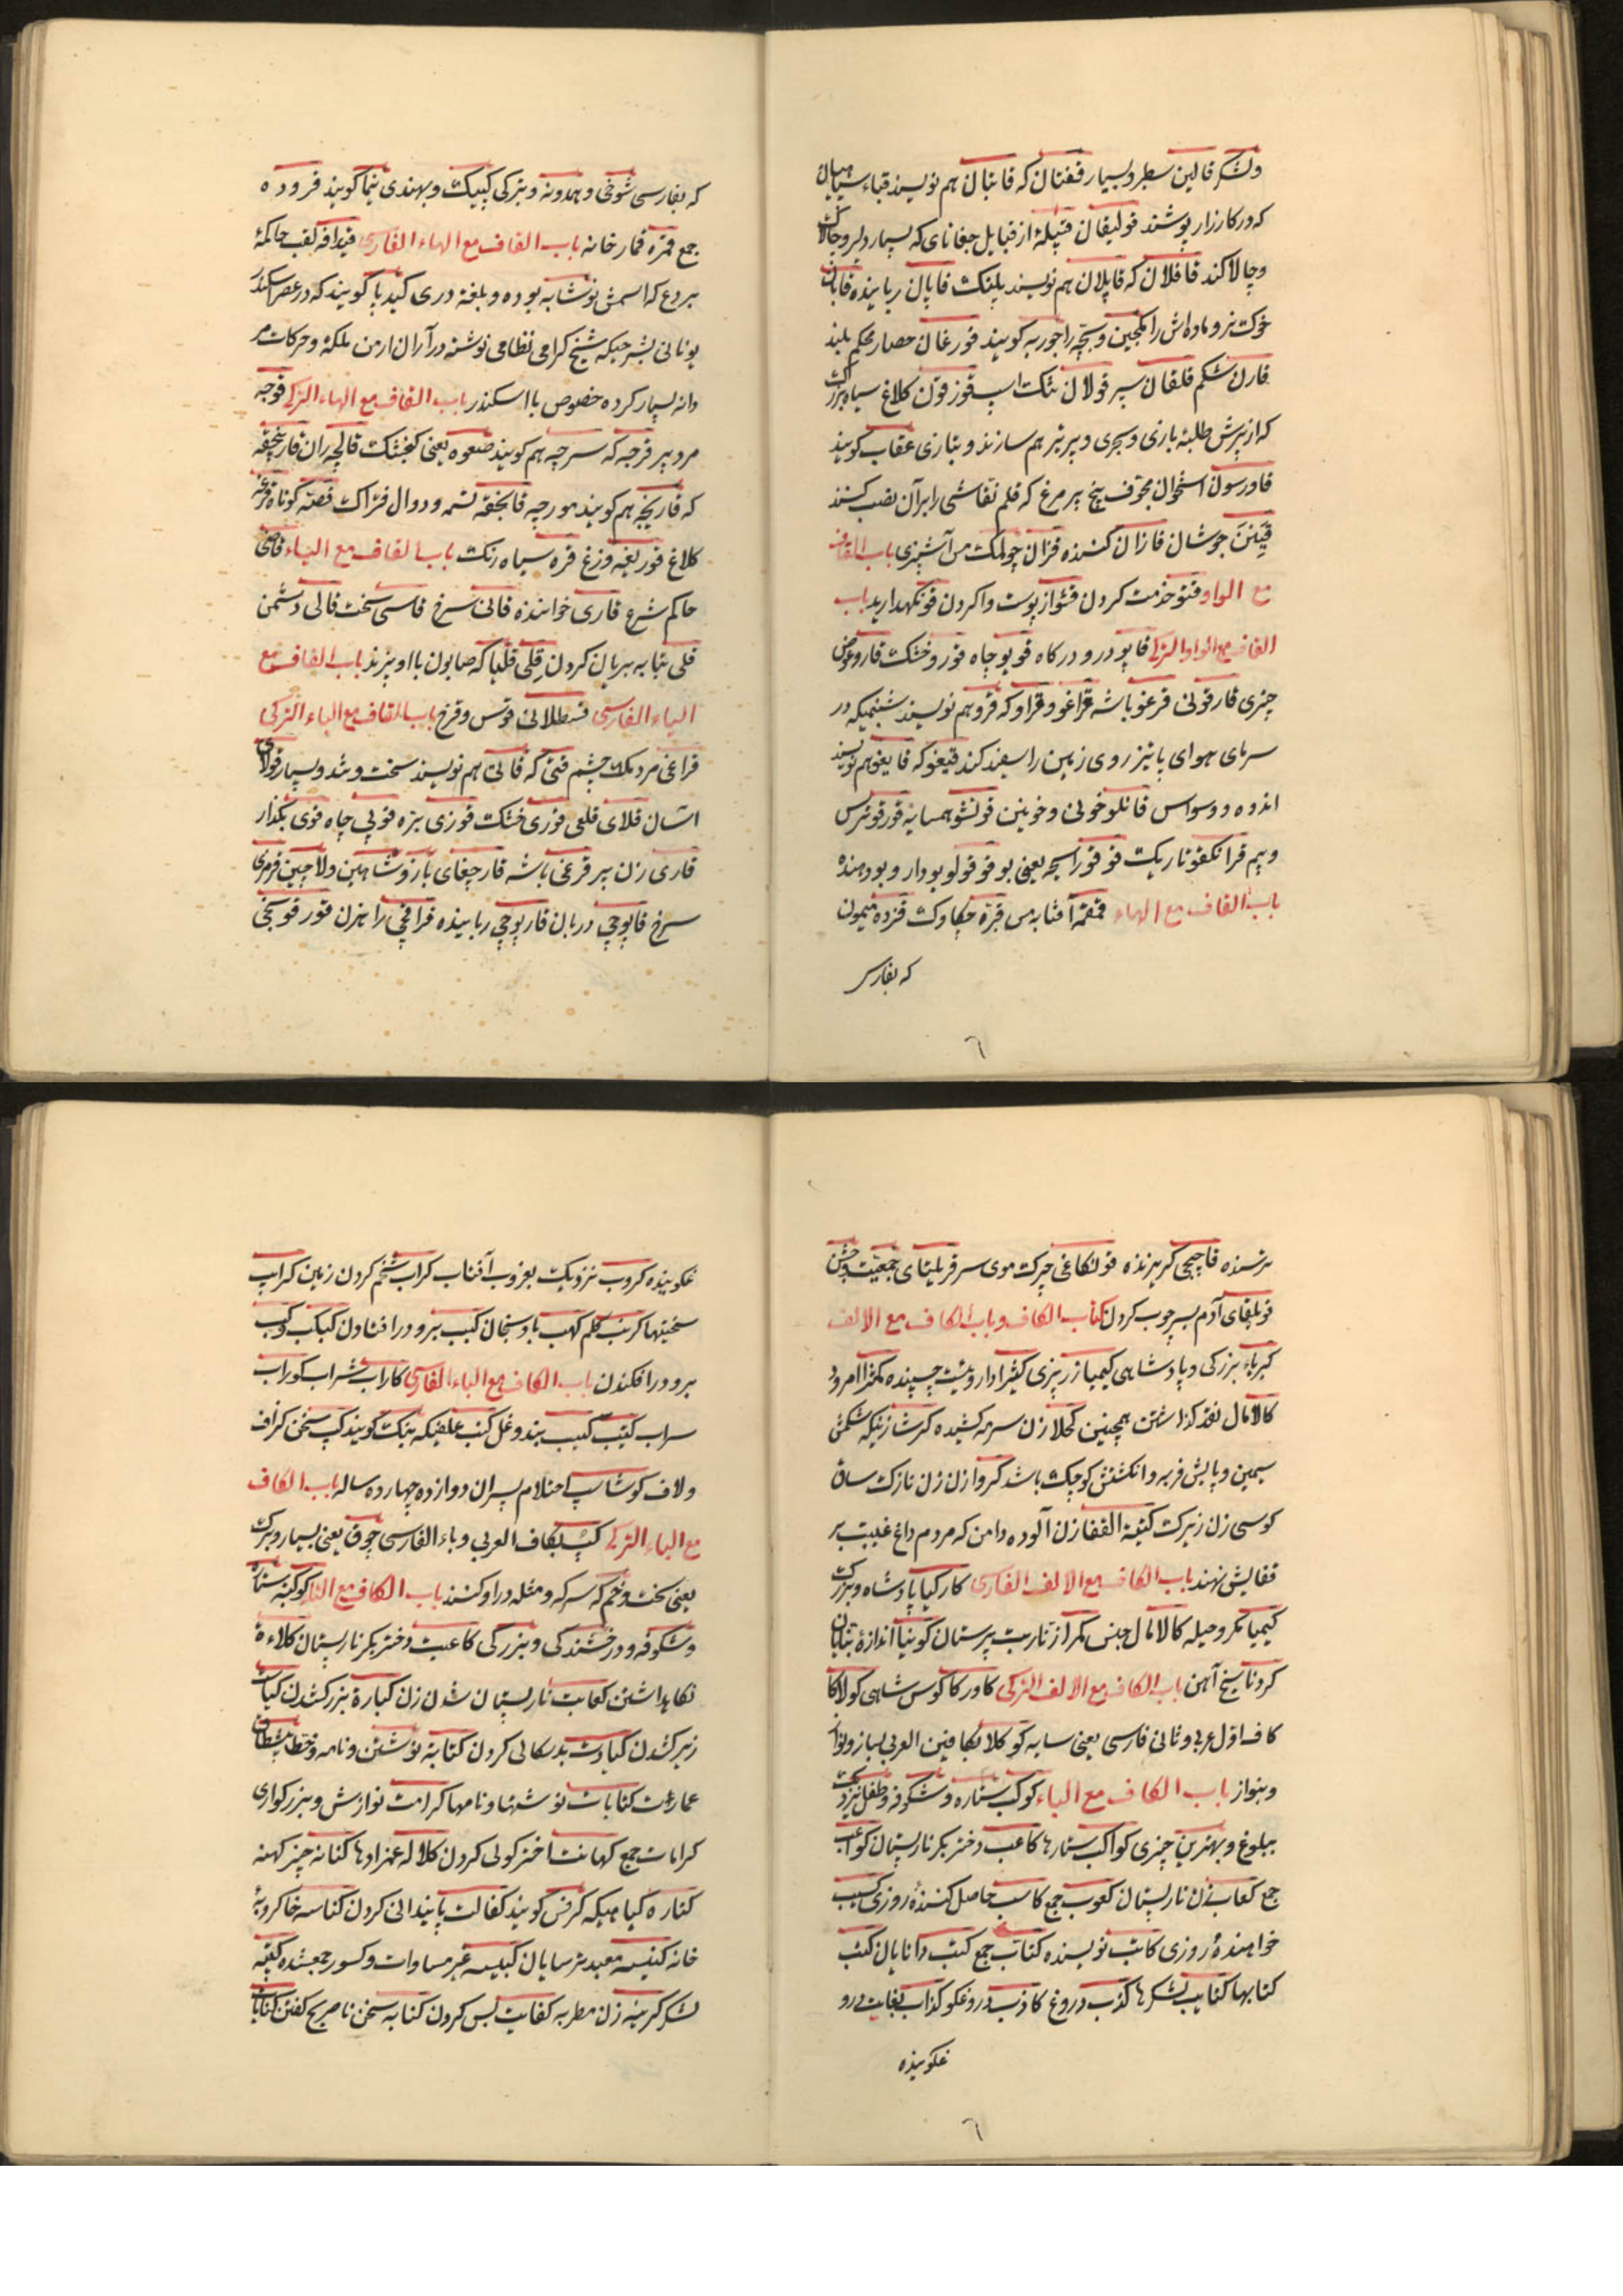 ولشکر قالین سطبر و بسیار قفتان که قابتال هم نویسند قباء سپاهیان
که در کارزار پوشند قولیقان قبیلهٔ از قبایل جغتای که بسیار دلیر و چالاک
و چالاکند قافلان که قاپلان هم نویسند پلنک قاپان رباینده قابان
خوک نر و ماده‌اش را مکجین و بچه را جوربه کویند قورغان حصار محکم بلند
قارن شکم قلقان سپر قولان تنک اسب قوزقون کلاغ سیاه بزرک
که از پرش طلبهٔ بازی و بحری و پر تیر هم سازند و بتازی عقاب کویند
قاورسون استخوان مجوف بیخ پر مرغ که قلم نقاشی را بر آن نصب کنند
قینن جوشان قازان کننده قزان چولمک مس آشپزی باب القاف
مع الواو قنو خدمت کردن قشو از پوست وا کردن قو نکهدارید باب
القاف مع الواو الترکی قاپو در و درکاه قویو چاه قورو خشک قارو عوض
چیزی قارقو نی قرغو باشه قراغو و قراو که قرو هم نویسند شبنمیکه در
سرمای هوای پائیز روی زمین را سفید کند قیغو که قایغو هم نویسند
اندوه و وسواس قانلو خونی و خونین قونشو همسایه قورقو ترس
و بیم قرانکقو تاریک قوقو رایحه یعنی بو قوقولو بودار و بو دهنده
باب القاف مع الهاء قمقمه آفتابه مس قبره چکاوک قرده میمون
که بفارسی
که بفارسی شوخی و همدونه و بترکی کپیک و بهندی نیما کویند قروده
جمع قمره قمارخانه باب القاف مع الهاء الفارسی قیدافه لقب حاکمهٔ
بردع که اسمش نوشابه بوده و بلغة دری کیدپا کویند که در عصر اسکندر
یونانی بشرحیکه شیخ کرامی نظامی نوشته در آران ارمن ملکه و حرکات مر
دانه بسیار کرده خصوص با اسکندر باب القاف مع الهاء الترکی قوجه
مرد پیر قرجه که سرچه هم کویند صعوه یعنی کنجشک قالچه ران قارنجقه
که قارنجه هم کویند مورچه قابجقه تسمه و دوال فتراک قصه کوتاه قرغه
کلاغ قوربغه وزغ قره سیاه رنک باب القاف مع الیاء قاضی
حاکم شرع قاری خواننده قانی سرخ قاسی سخت قالی دشمن
قلی بتابه بریان کردن قلی قلیا که صابون با او پزند باب القاف مع
الیاء الفارسی قسطلانی قوس و قزح باب القاف مع الیاء الترکی
قراغی مردمک چشم قتی که قاتی هم نویسند سخت و تند و بسیار قولای
آسان قلای قلعی قوری خشک قوزی بره قویی چاه قوی بکذار
قاری زن پیر قرغی باشه قارچغای باز و شاهین و لاچین قرمزی
سرخ قاپوچی دربان قاپوچی رباینده قراقچی راهزن قورقوسجی
ترسنده قاچیجی کریزنده قولنکاغی چرک موی سر قریلتای جمعیت و جشن
قوبلقای آدم پس چوب کردن کتاب الکاف و باب الکاف مع الالف
کبریاء بزرکی و پادشاهی کیمیا زرریزی کثیرا داروئیست چسپنده کمثرا امرود
کالا مال نقد کذاشتن همچنین کحلا زن سرمه کشیده کرشا زنیکه شکمش
سیمین و پایش فربه و انکشتش کوچک باشد کروا زن زن نازک ساق
کوسی زن زیرک کثیفة القفا زن آلوده دامن که مردم داغ غیبت بر
قفایش نهند باب الکاف مع الالف الفارسی کارکیا پادشاه و بزرک
کیمیا مکر و حیله کالا مال جنس مکرا زنار بت پرستان کونیا اندازهٔ بنایان
کردنا سیخ آهن باب الکاف مع الالف الترکی کاورکا کوس شاهی کولاکا
کاف اول عربی و ثانی فارسی یعنی سایه کوکلا بکافین العربی بساز و نواز
و بنواز باب الکاف مع الباء کوکب ستاره و شکوفه و طفل نزدیک
ببلوغ و بهترین چیزی کواکب ستارها کاعب دختر بکر نارپستان کواعب
جمع کعاب زن نارپستان کعوب جمع کاسب حاصل کنندهٔ روزی کسب
خواهندهٔ روزی کاتب نویسنده کتاب جمع کتب دانایان کتب
کتابها کتایب لشکرها کذب دروغ کاذب دروغکو کذاب بغایت درو
غکوینده
غکوینده کروب نزدیک بغروب آفتاب کراب شخم کردن زمین کرایب
سختیها کرنب کلم کهب بادنجان کبب برو در افتادن کبکب و کب
برو در افکندن باب الکاف مع الباء الفارسی کاراب شراب کوراب
سراب کتیب کبیب بند و غل کنب علفیکه بنک کویند کپ سخن کزاف
و لاف کوشاسپ احتلام پسران دوازده چهارده ساله باب الکاف
مع الباء الترکی کپ بکاف العربی و باء الفارسی چوق یعنی بسیار و بزرک
یعنی سخت و خم که سرکه و مثله در او کنند باب الکاف مع التاء کوکبة ستاره
و شکوفه و درخشندکی و بزرکی کاعبة دختر بکر نارپستان کلاءة
نکاهداشتن کعابت نارپستان شدن زن کبارة بزرک شدن کیاست
زیرک شدن کیادت بدسکالی کردن کتابة نوشتن و نامه و خط پیشطاق
عمارت کتابات نوشتها و نامها کرامت نوازش و بزرکواری
کرامات جمع کهانت اخترکوئی کردن کلاله عمزادها کتانه چیز کهنه
کناره کیاهیکه کرفس کویند کفالت پایندانی کردن کناسه خاکروبهٔ
خانه کنیسه معبد ترسایان کبیسه غیر مساوات و کسور جمعشده کتیبه
لشکر کرینه زن مطربه کفایت بس کردن کنایه سخن ناصریح کفتن کنایات